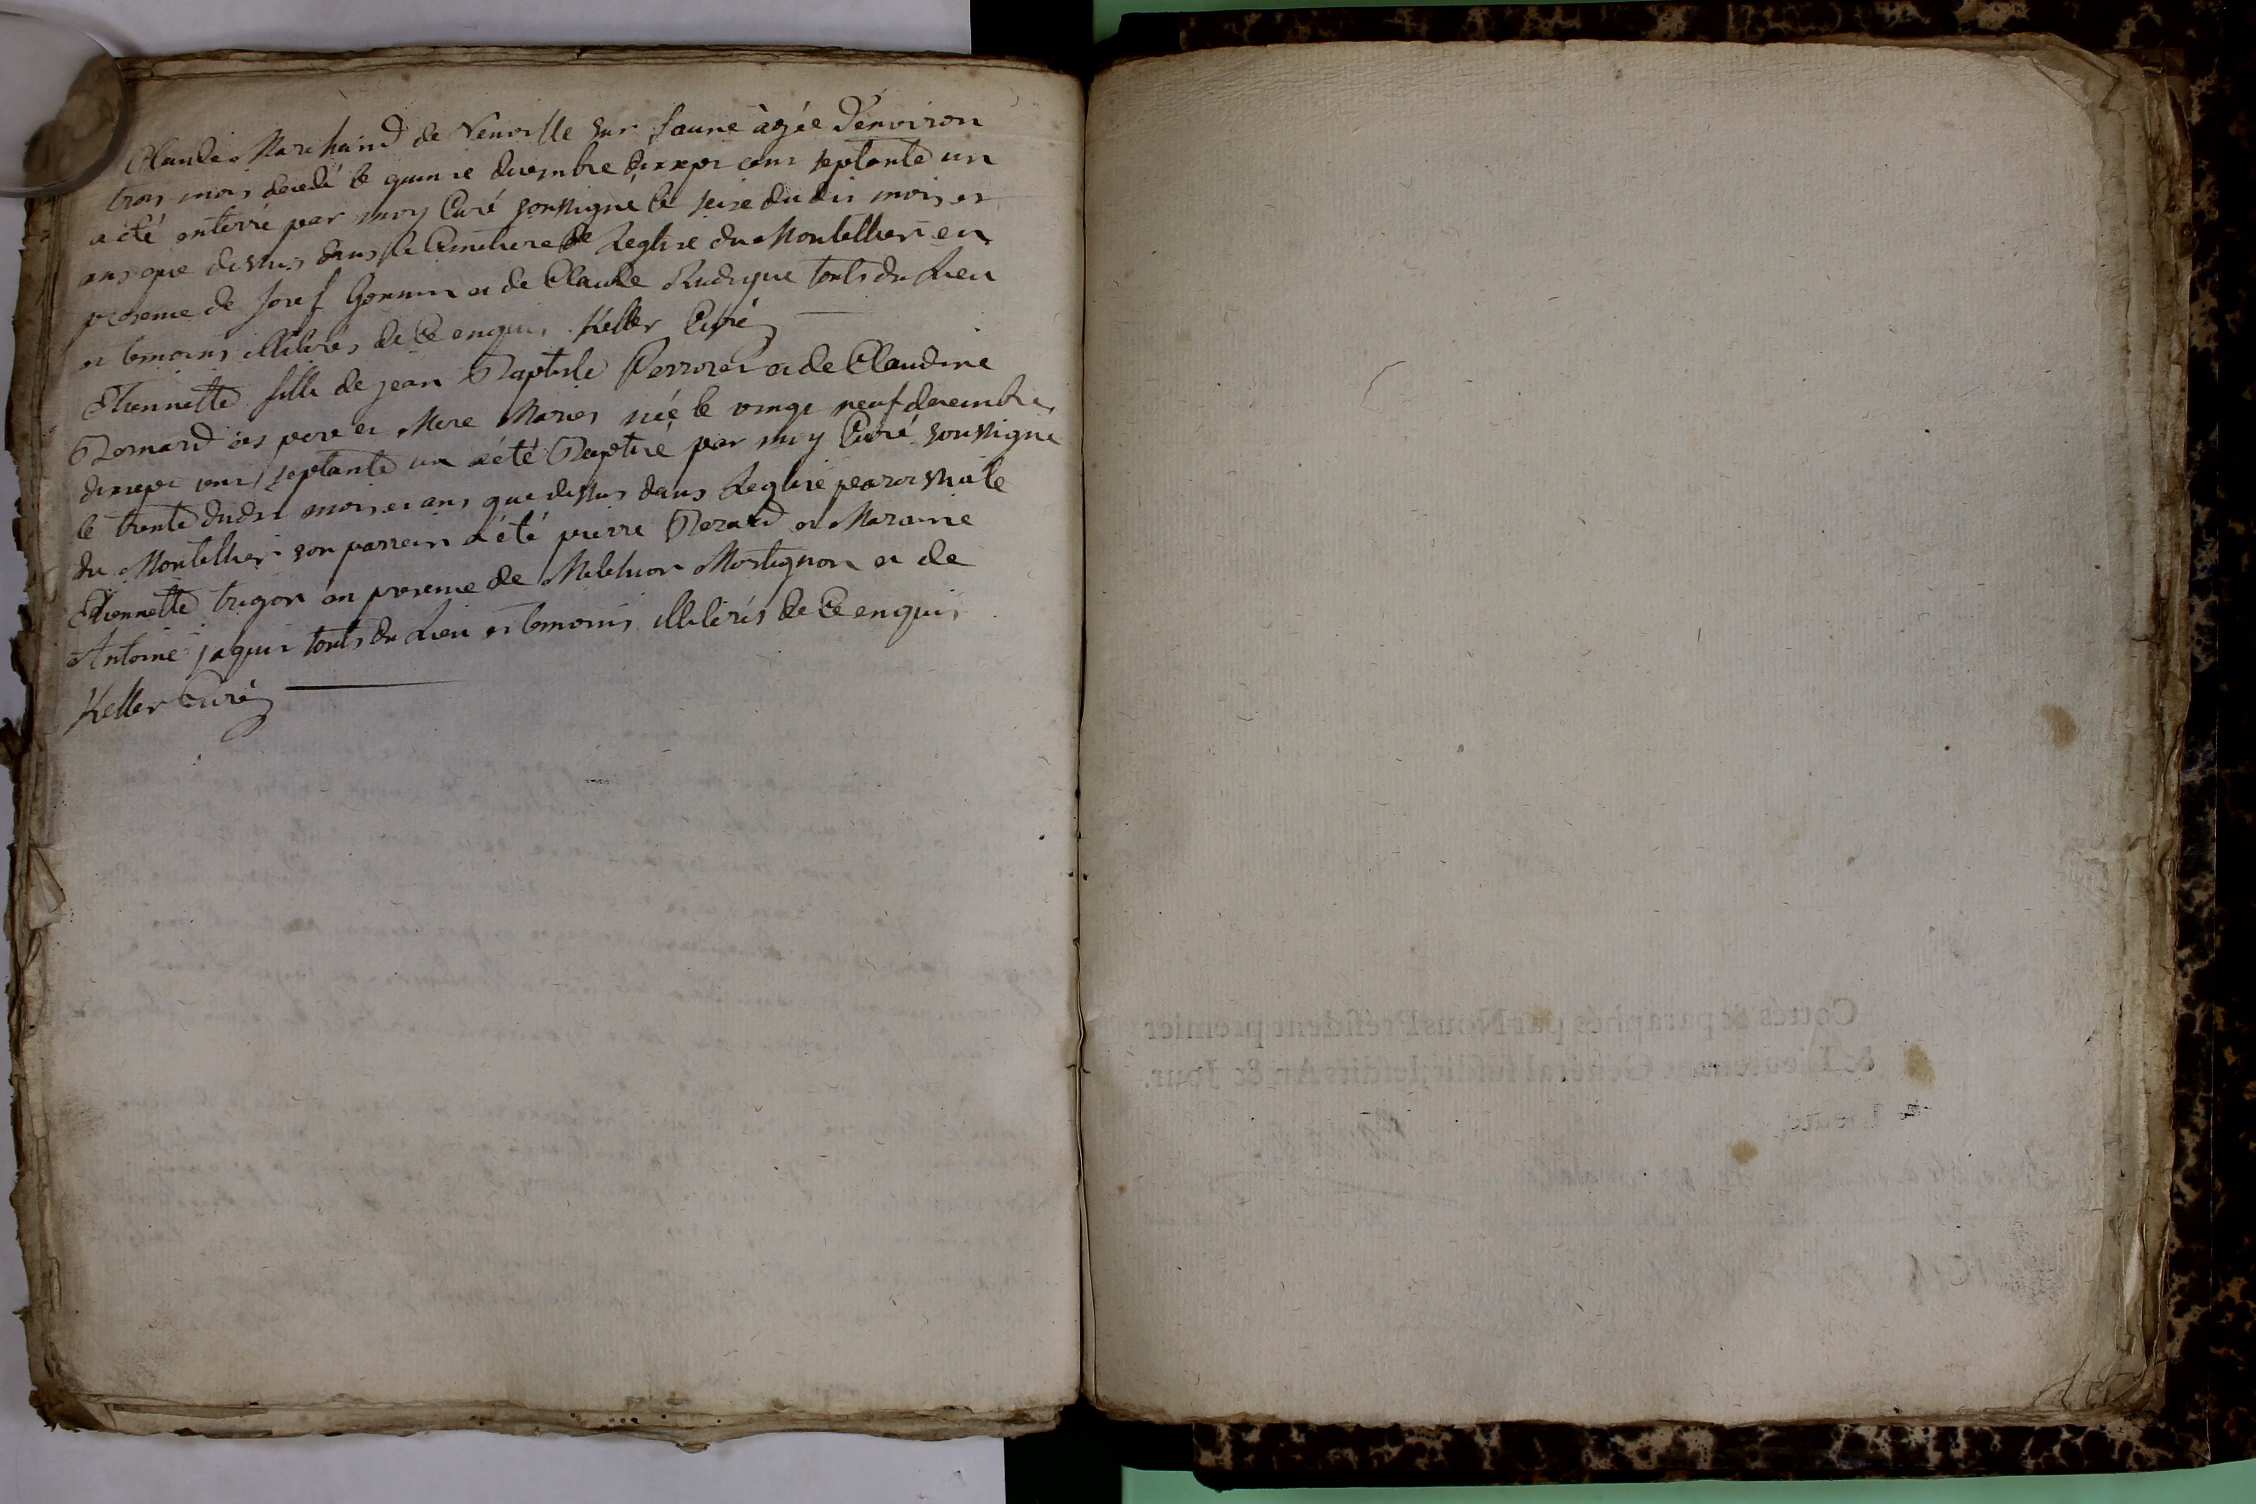 Claude Marchand de Neuville sur saune agée d'environ
trois mois decedé le quinze decembre dixsept cent septante un
a été enterré par moy Curé soussigné le seize dudit mois et
ans que dessus dans le Cimetiere de Leglise du Montellier en
presence de Josef et de Claude touts du Lieu
et temoins illiterés de Ce enquis Keller Curé
Etiennette fille de jean Baptiste Perrozet et de Claudine
Bornard ses pere et Mere Mariés née le vingt neuf decembre
dixsept cent septante un a été Baptisé par moy Curé soussigné
le trente dudit mois et ans que dessus dans Leglise paroissiale
du Montellier son parrein a été pierre Bezard et Maraine
Etiennette trigon en presence de Melchior Mortignon et de
Antoine jaquit touts du Lieu et temoins illiterés de Ce enquis
Keller Curé
Cottés & paraphés par Nous Président premier
& Lieutenant Général susdit, lesdits An & Jour.